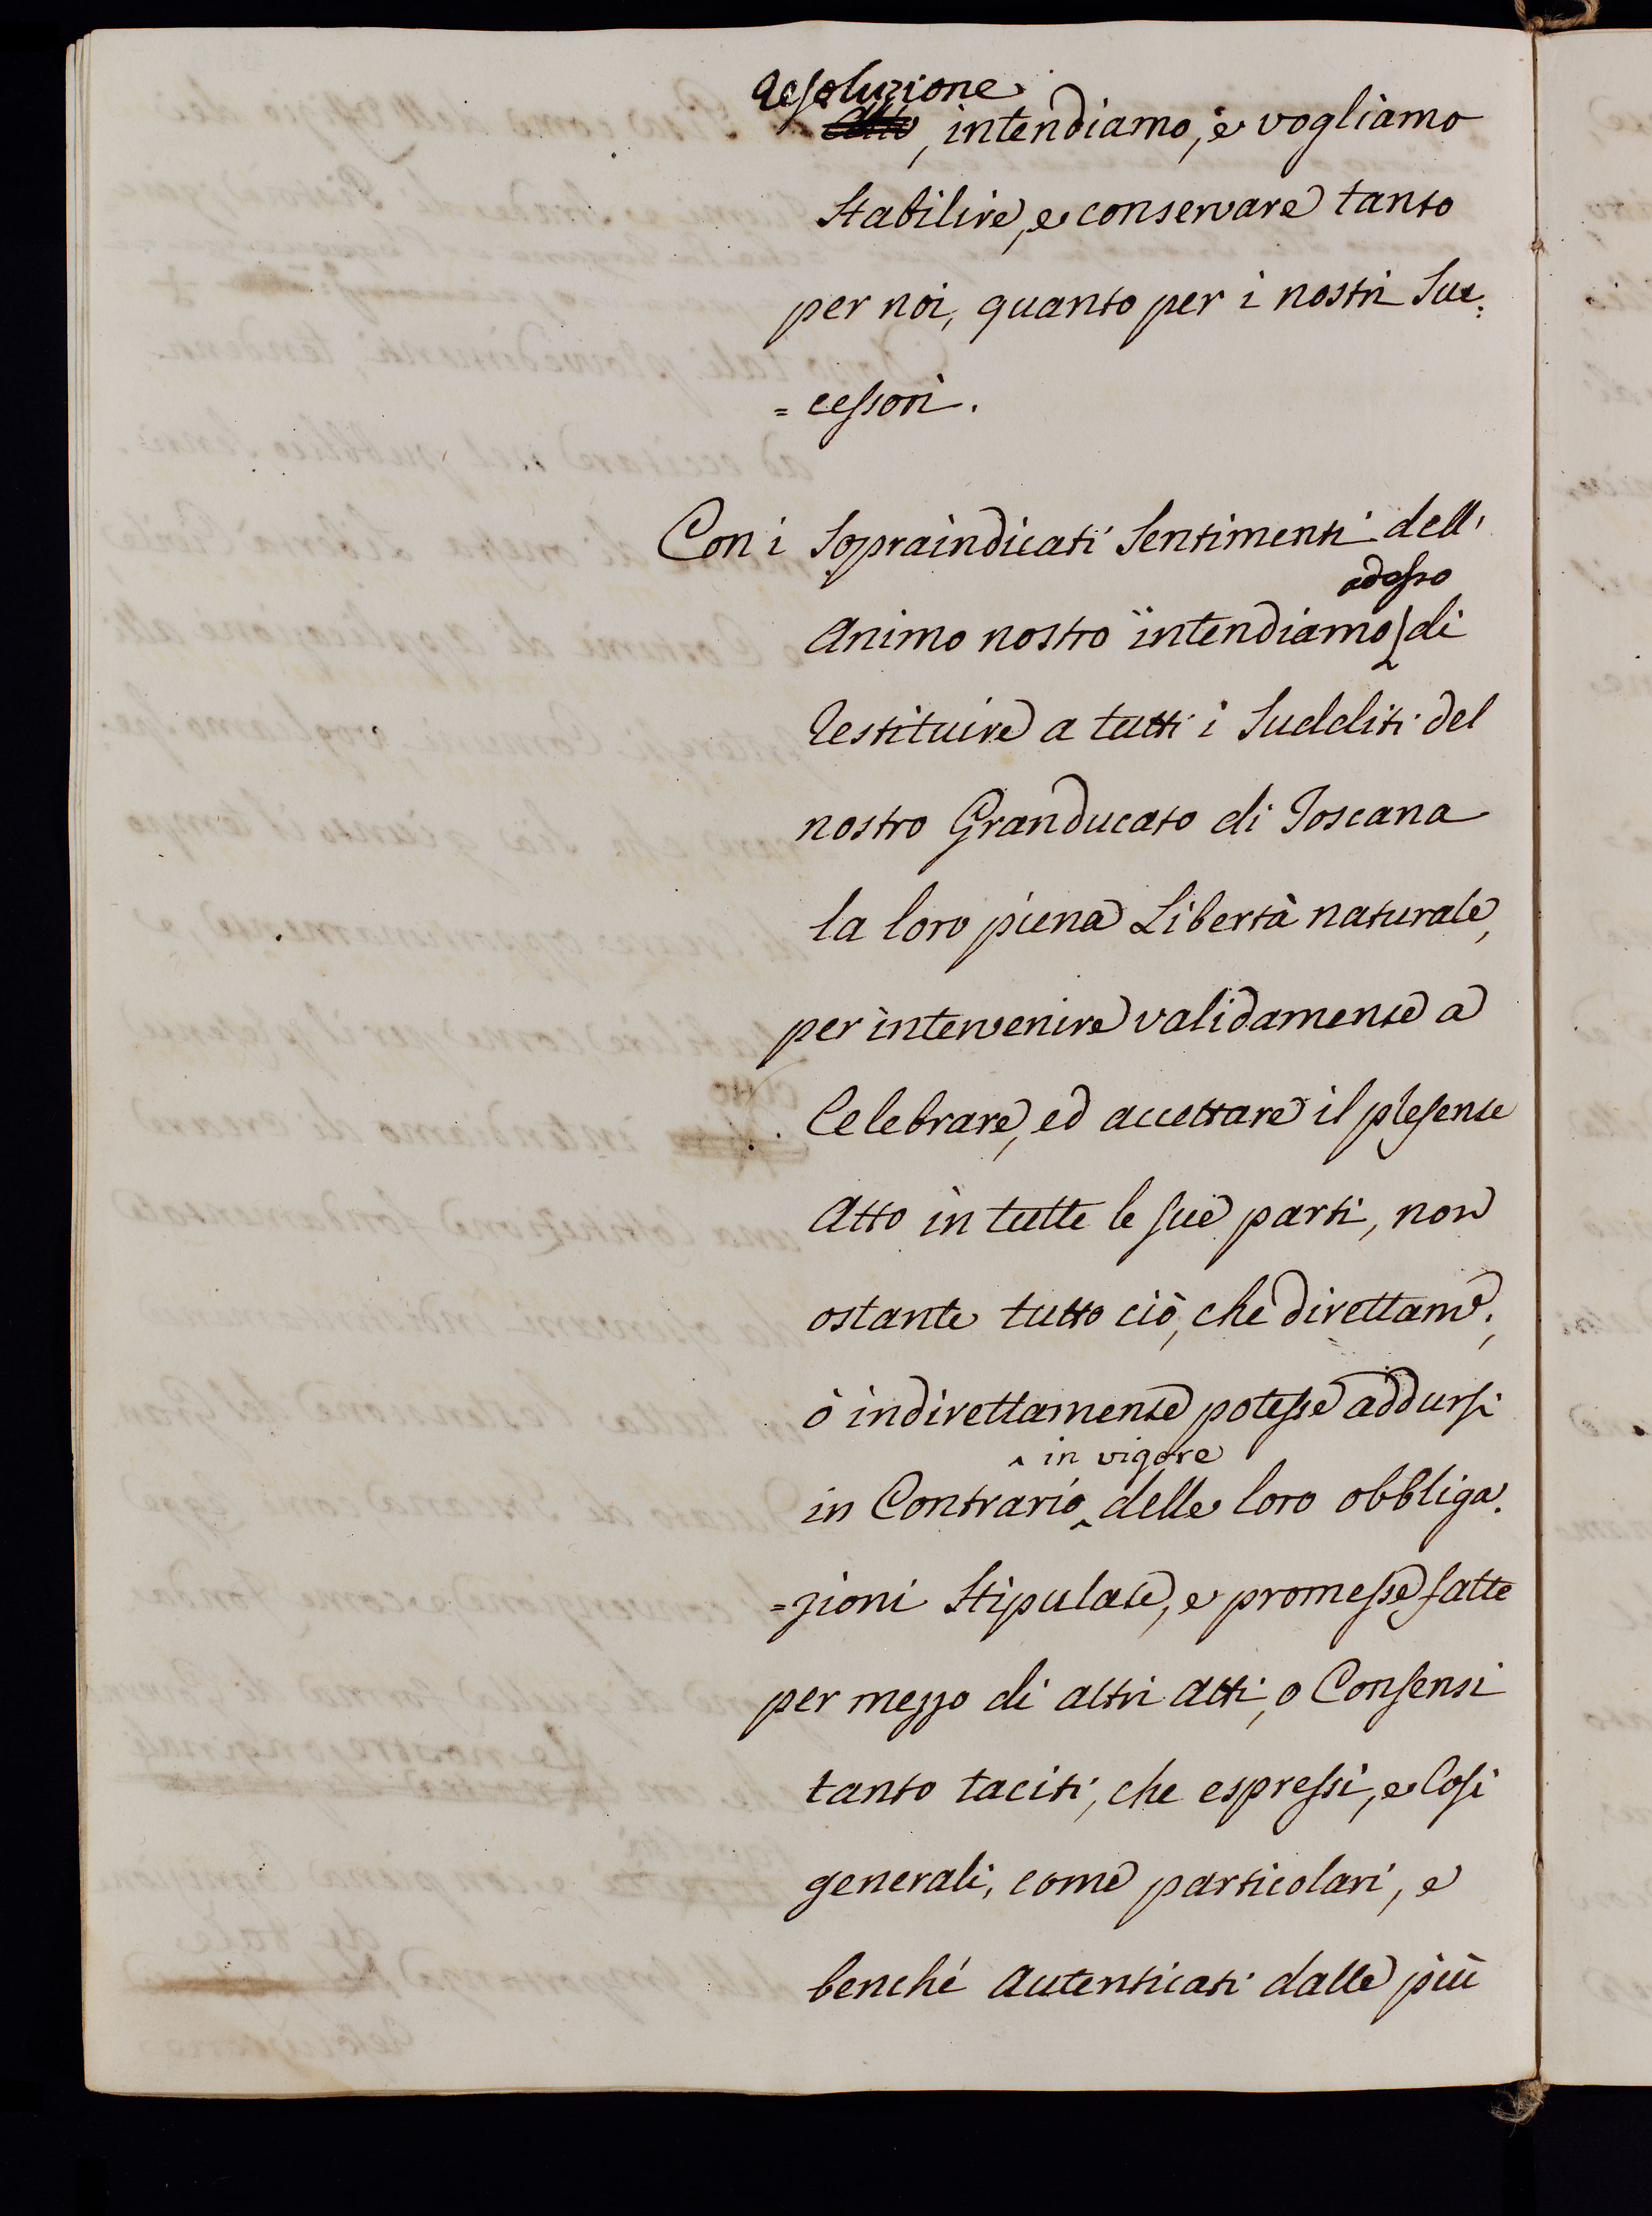 Resoluzione
Atto, intendiamo, e vogliamo
Stabilire, e conservare tanto
per noi, quanto per i nostri Suc:
=cessori.
Con i Sopraindicati Sentimenti dell'
adesso
Animo nostro intendiamo di
Restituire a tutti i Sudditi del
nostro Granducato di Toscana
la loro piena Libertà naturale,
per intervenire validamente a
Celebrare, ed accettare il presente
Atto in tutte le sue parti, non
ostante tutto ciò, che direttam.e,
ò indirettamente potesse addursi
in vigore
in Contrario delle loro obbliga:
=zioni Stipulate, e promesse fatte
per mezzo di altri atti, o Consensi
tanto taciti, che espressi, e Così
generali, come particolari, e
benché Autenticati dalle più